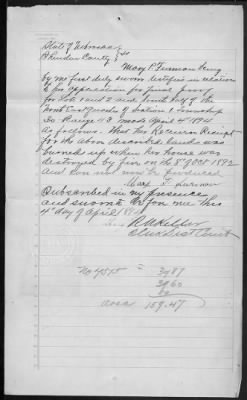 State of Nebraska
Sheridan County ss
Mary F. Furman being
by me first duly sworn testifies in relation
to her application for final proof
for Lots 1 and 2 and South half of the
North East quarter of Section 1 Township
Range 43 made April 4" 1894
as follows. That her Receiver Receipt
for the above described lands was
burned up when her house was
destroyed by fire on the 8" of Oct 1892
and can not now be produced
Mary F. Furman
Subscribed in my presence
and sworn to before me this
4" day of April 1894
Clerk Dist Court
3987
3960
80
area 159.47